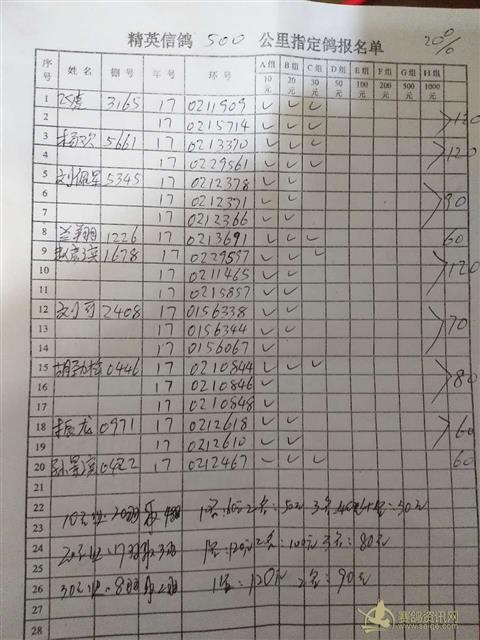 精英信鸽 500 公里指定鸽报名单 20%
序号 姓名 棚号 年号 环号 A组10元 B组20元 C组30元 D组50元 E组100元 F组200元 G组500元 H组1000元
1 3165 17 0211909 ✓ ✓ ✓
2 17 0215714 ✓ ✓ ✓ 120
3 杨欢 5661 17 0213370 ✓ ✓ ✓
4 17 0229561 ✓ ✓ ✓ 120
5 刘佩军 5345 17 0212378 ✓ ✓
6 17 0212371 ✓ ✓ 90
7 17 0212366 ✓ ✓
8 兰翔 1226 17 0213691 ✓ ✓ ✓ 60
9 1678 17 0229557 ✓ ✓ ✓
10 17 0211465 ✓ ✓ 120
11 17 0215857 ✓ ✓
12 刘可 2408 17 0156338 ✓ ✓
13 17 0156344 ✓ ✓ 70
14 17 0156067 ✓
15 胡劲松 0446 17 0210844 ✓ ✓ ✓
16 17 0210846 ✓ 80
17 17 0210848 ✓
18 振龙 0971 17 0212618 ✓ ✓
19 17 0212610 ✓ ✓ 60
20 孙景滨 0422 17 0212467 ✓ ✓ ✓ 60
21
22 10元组:20羽取4羽 1名:60元 2名:50元 3名40元 4名:30元
23
24 20元组:17羽取3羽 1名:120元 2名:100元 3名:80元
25
26 30元组:8羽取2羽 1名:120元 2名:90元
27
28
赛鸽资讯网
www.saige.com